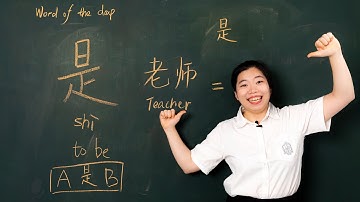 Word of the day
是
shì
to be
A 是 B
老师 =
Teacher
是